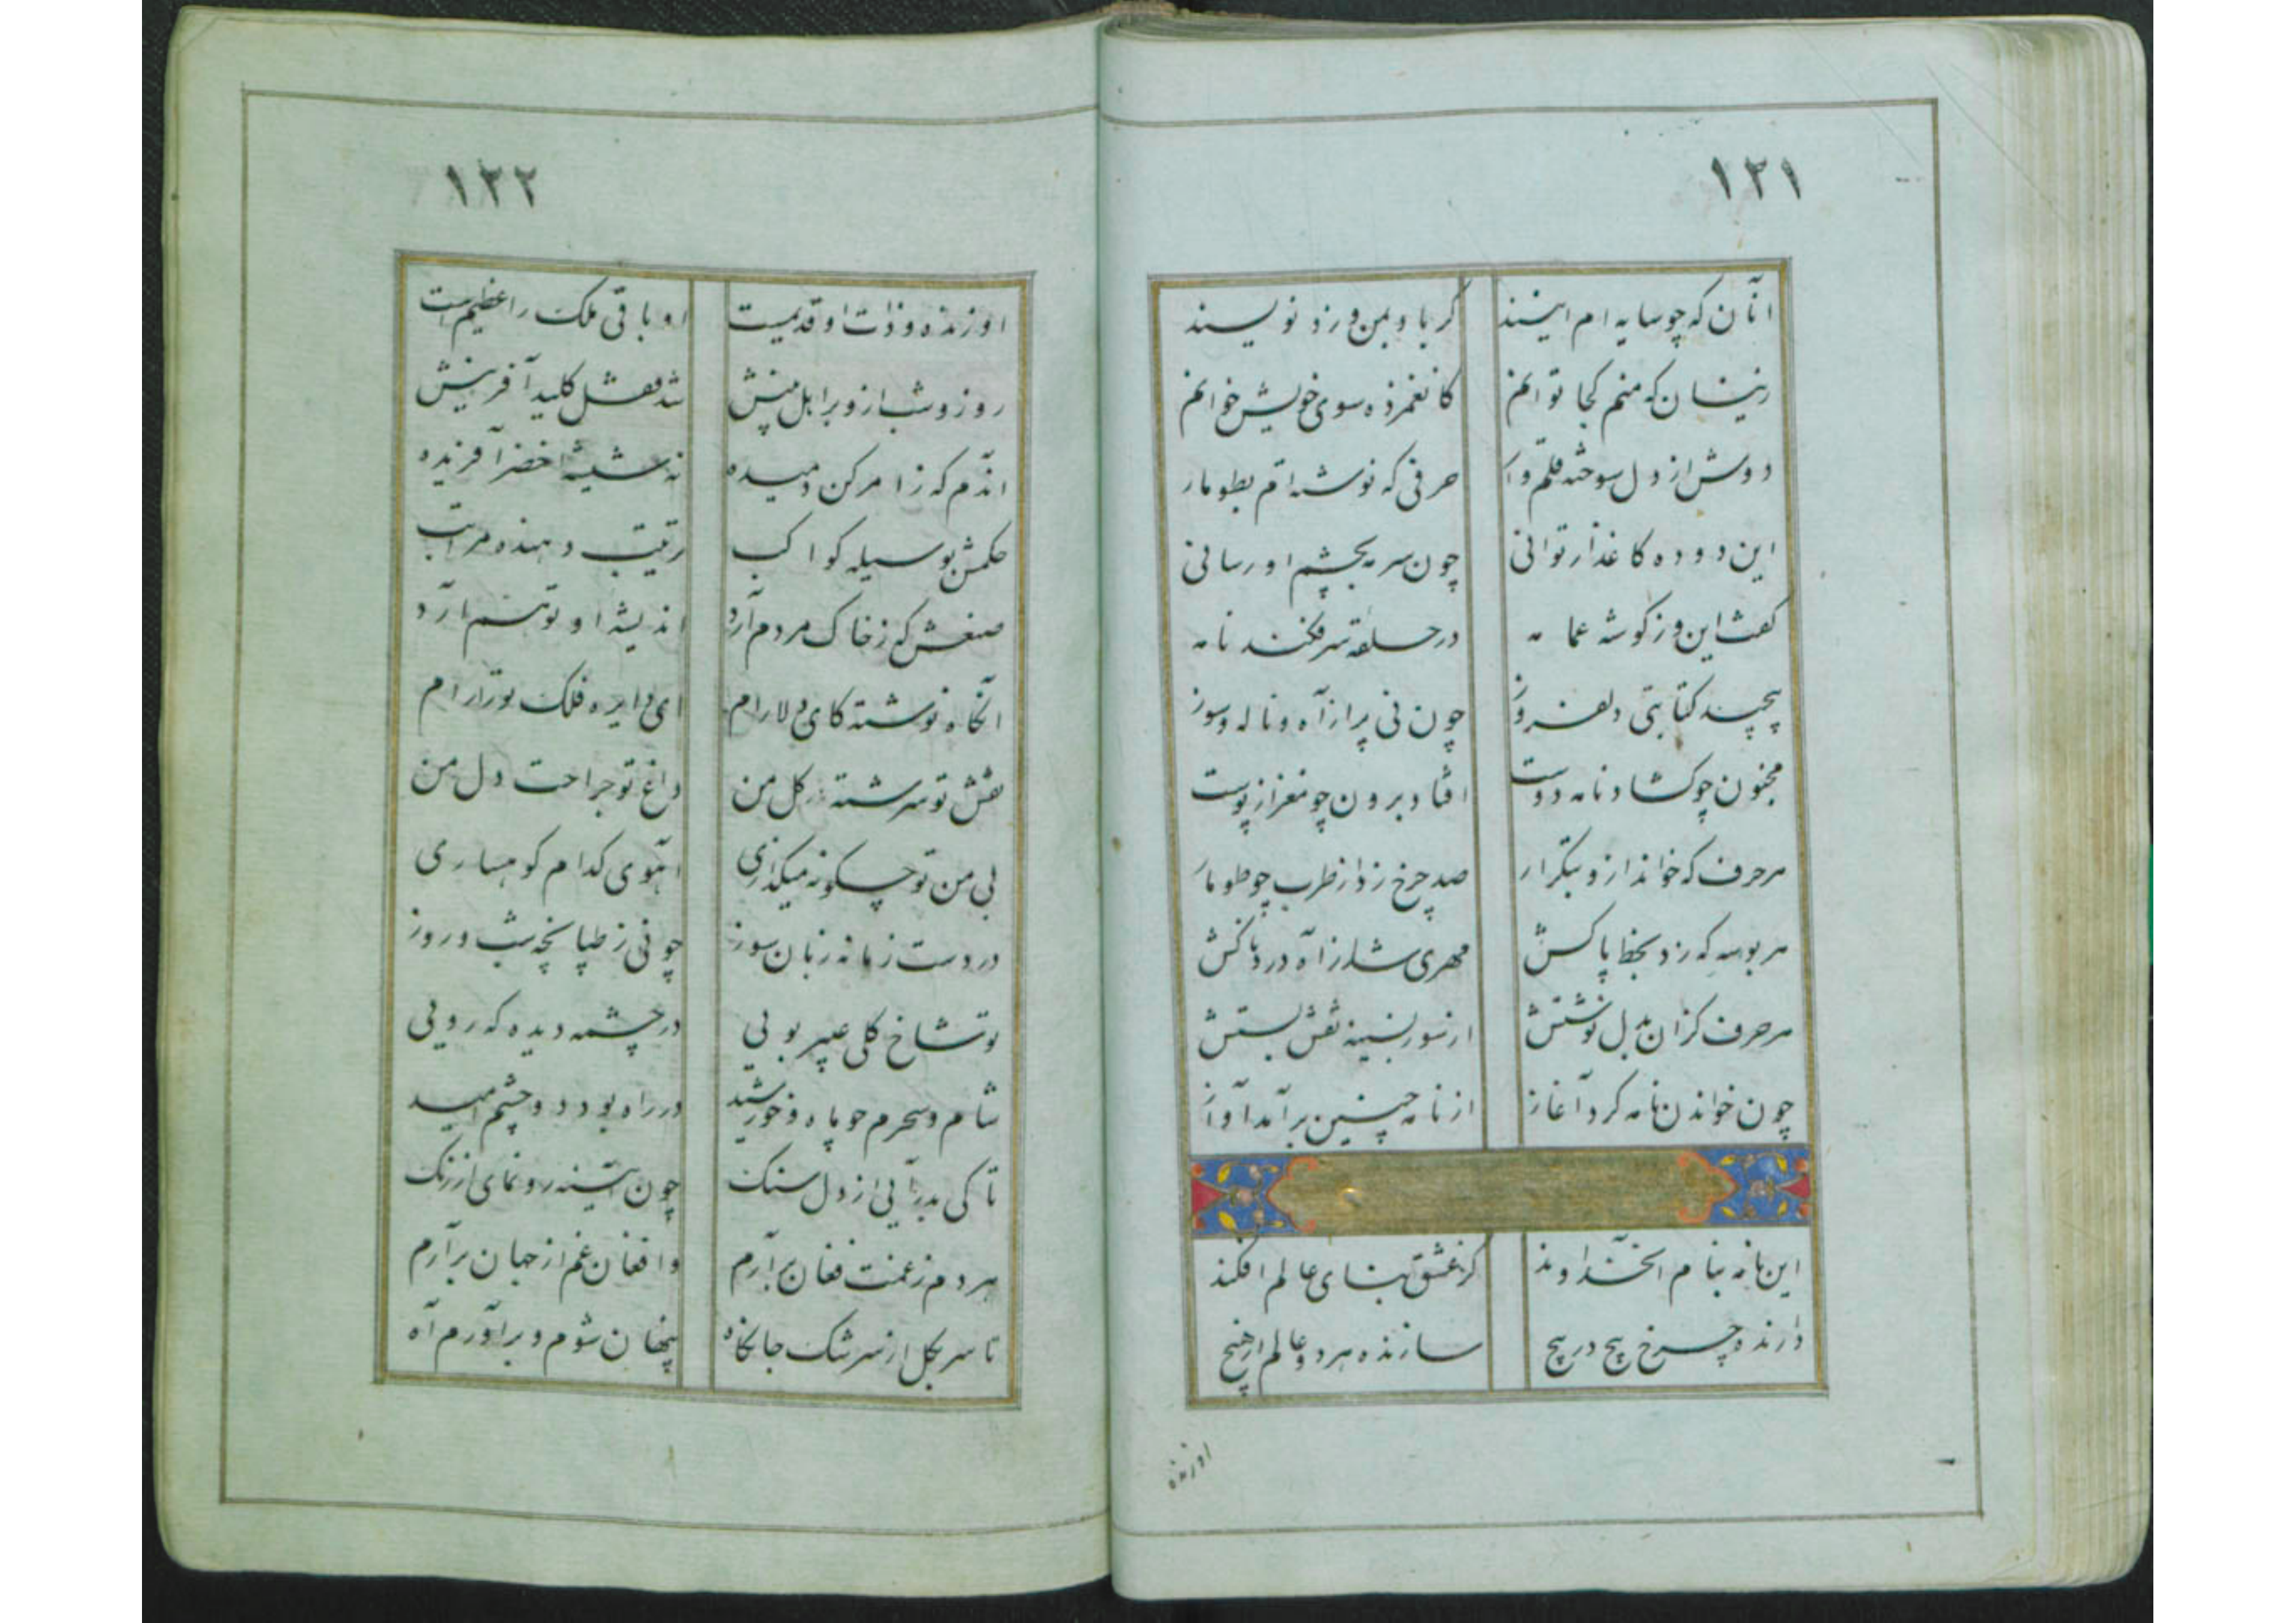 ۱۲۱
آنان که چو سایه ام انیسند گر با و بمن ورزد نویسند
زینسان که منم کجا توانم کاغمزده سوی خویش خوانم
دوش از دل سوخته قلم وار حرفی که نوشته ام بطومار
این دوده کاغذ ار توانی چون سرمه بچشم او رسانی
گفت این و ز گوشه عمامه در حلقه سر فکند نامه
پیچید کتابتی دلفروز چون نی پر از آه و ناله و سوز
مجنون چو گشاد نامه دوست افتاد برون چو مغز از پوست
هر حرف که خواند ازو بتکرار صد چرخ زد از طرب چو طومار
هر بوسه که زد بخط پاکش مهری شد از آه دردناکش
هر حرف کزان بدل نوشتش از سور بسینه نقش بستش
چون خواندن نامه کرد آغاز از نامه چنین برآمد آواز
این نامه بنام آنخداوند کز عشق بنای عالم افکند
دارنده چرخ پیچ در پیچ سازنده هر دو عالم از هیچ
او زنده
۱۲۲
او زنده و ذات او قدیمست او باقی ملک را عظیمست
روز و شب ازو بر اهل بینش شد قفل کلید آفرینش
آندم که ز امر کن دمیده نه شیشه اخضر آفریده
حکمش بوسیله کواکب ترتیب دهنده مراتب
صنعش که ز خاک مردم آرد اندیشه او توسنم آرد
آنگاه نوشته کای دلارام ای دایره فلک تو را رام
نقش تو سرشته در گل من داغ تو جراحت دل من
بی من تو چگونه میگذاری آهوی کدام کوهساری
در دست زمانه زبان سوز چونی ز طپانچه شب و روز
تو شاخ گلی عبیر بویی در چشمه دیده که رویی
شام و سحرم چو ماه و خورشید در راه بود دو چشم امید
تا کی بدر آیی از دل سنگ چون آینه رو نمای از زنگ
هر دم ز غمت فغان برآرم و افغان غم از جهان برآرم
تا سر بگل از سرشک جانکاه پنهان شوم و برآورم آه